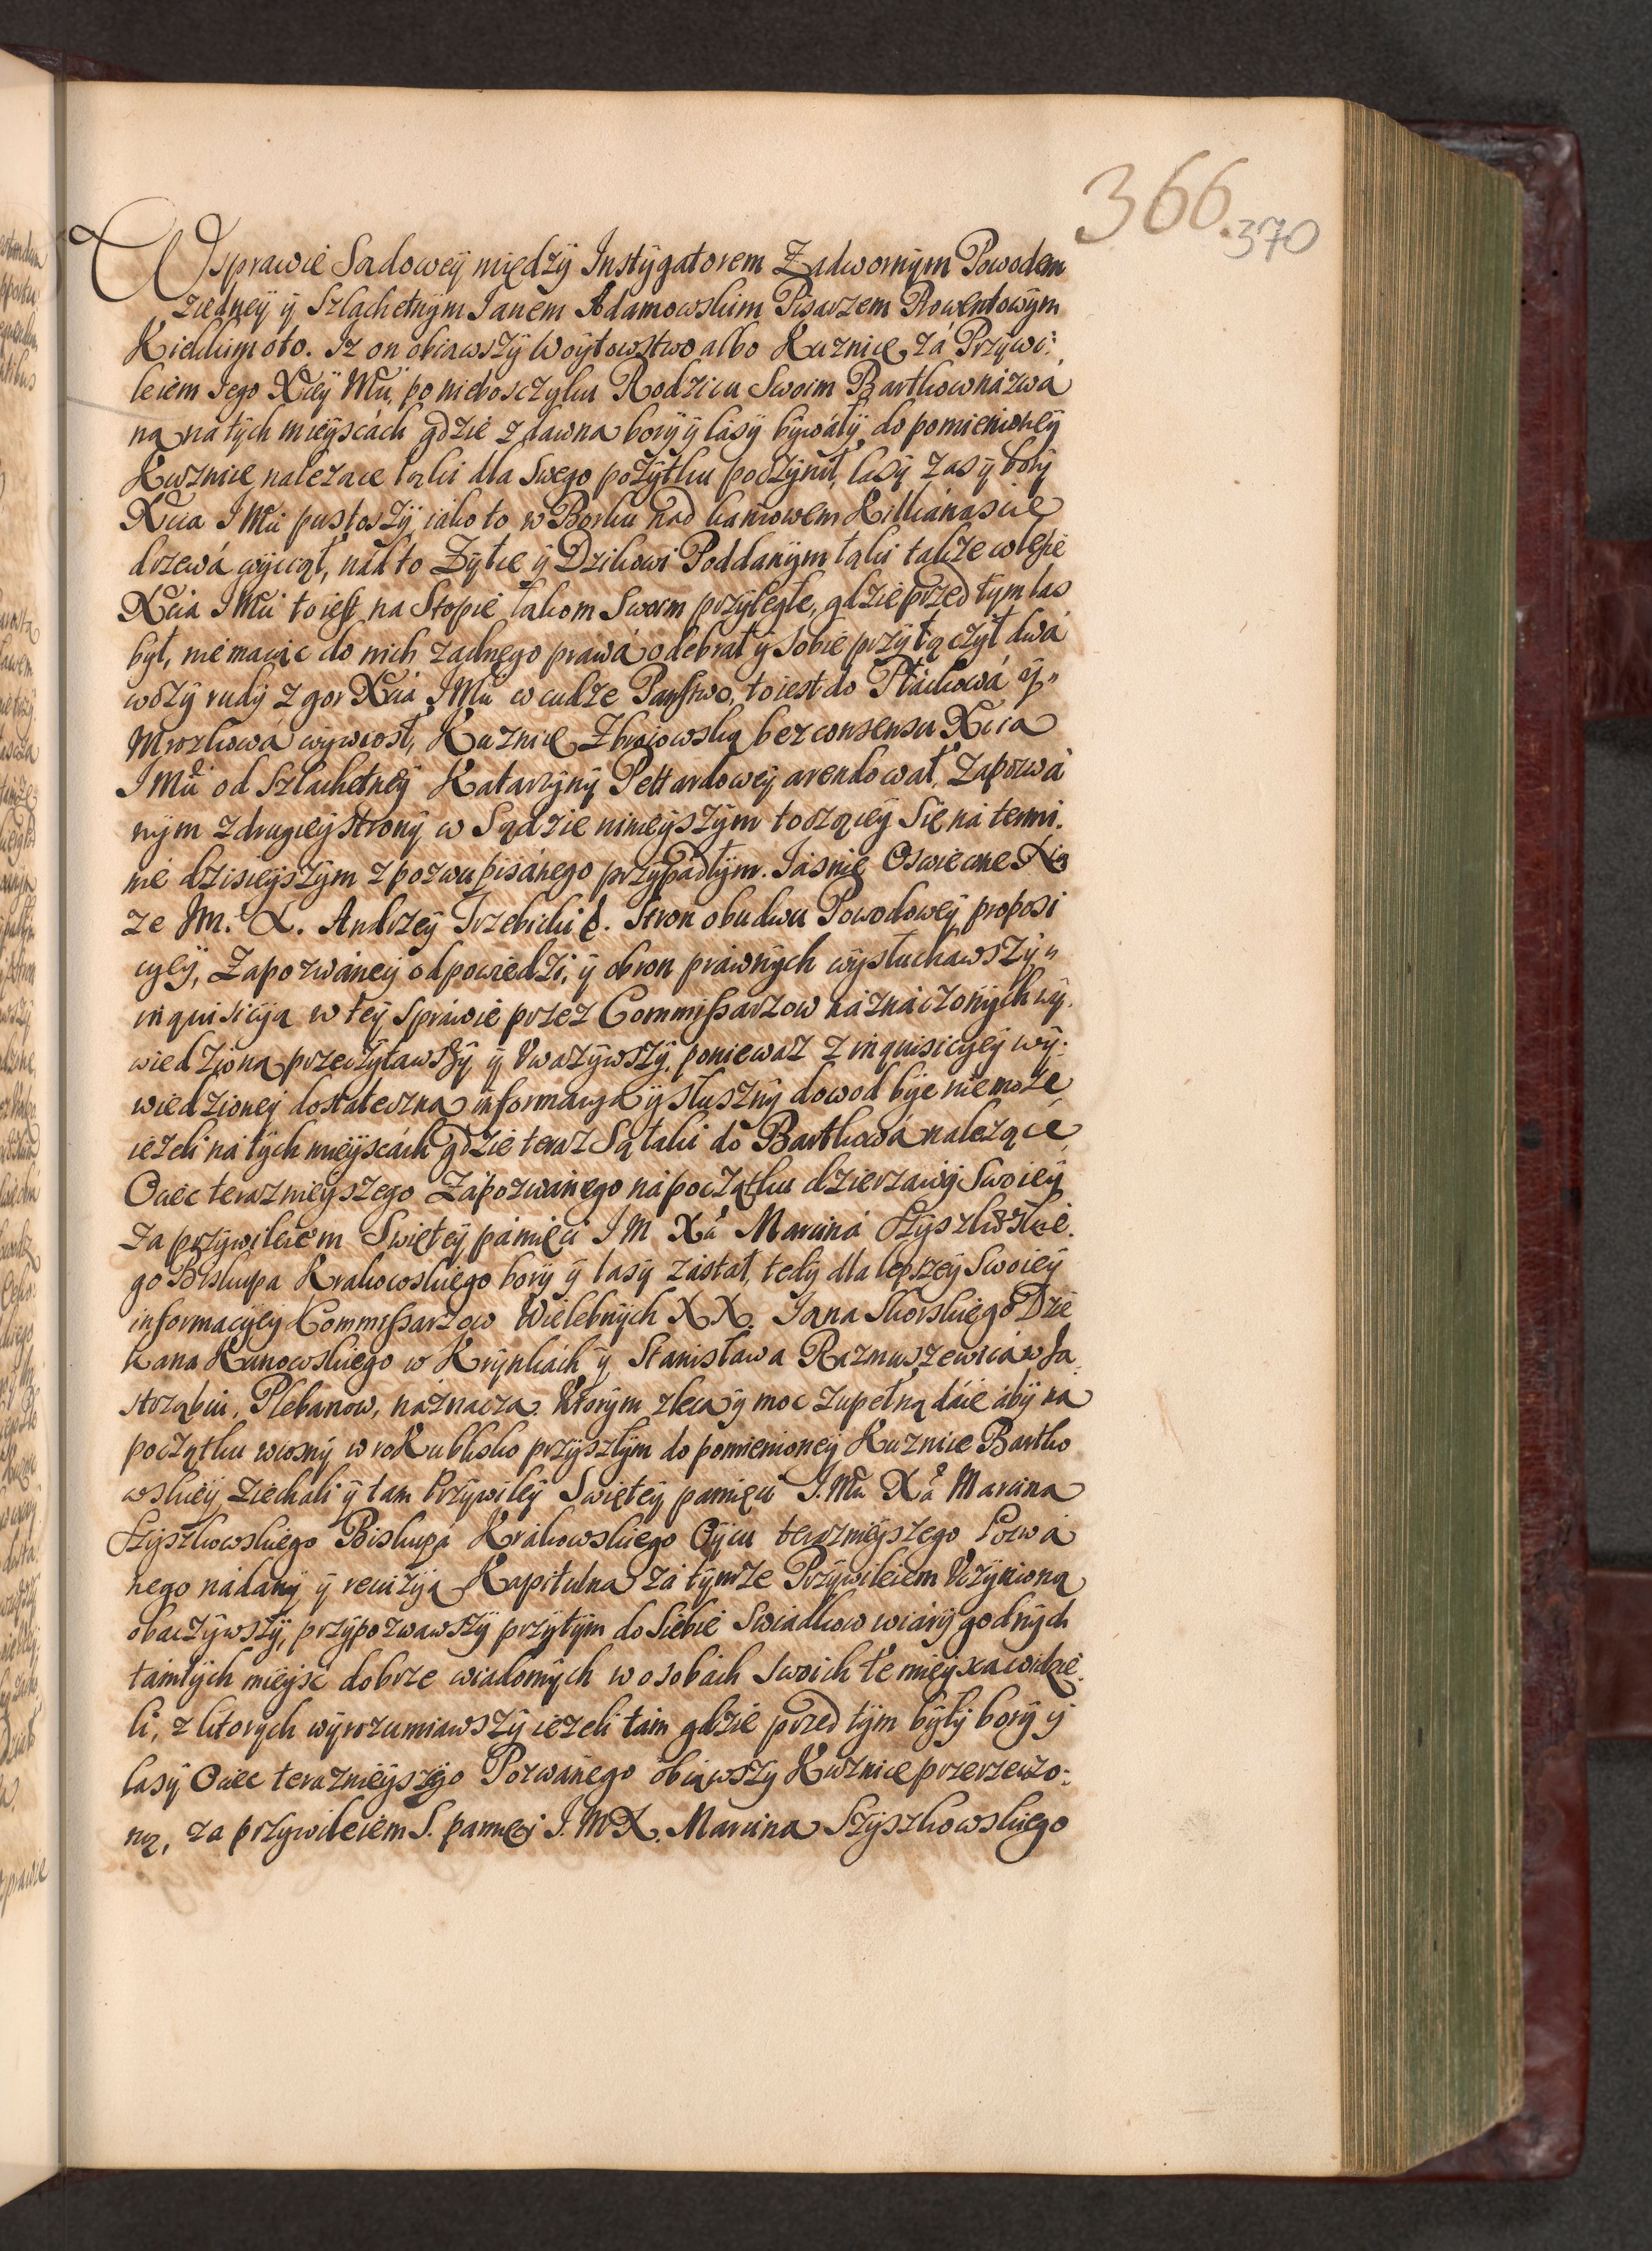 366.
370
W sprawie Sądoweÿ międzÿ Instÿgatorem Zadwornÿm Powodem
z iedneÿ ÿ Szlachetnÿm Janem Adamowskim Pisarzem Prowentowÿm
Kieleckim oto. Iz on obiawszÿ Woÿtowstwo albo Kuznicę zá Przÿwi:
leiem Jego Xceÿ Mci, po nieboszczÿku Rodzicu Swoim Bartkow názwá
ną na tÿch mieÿscách gdzie z dawna borÿ ÿ lásÿ bÿwáłÿ do pomienioneÿ
Kuznice nalezące łąki dla Swego pozÿtku poczÿnił, lasÿ zas ÿ borÿ
Xcia J Mci pustoszÿ, iako to w Borku nad kaniowem Kilkanascie
drzewá wÿciął, nádto Zÿłce ÿ Dzikowi Poddanÿm łąki także w leśie
Xcia J Mci to iest na Stopie łąkom Swoim przÿległe, gdzie przed tÿm las
bÿł, nie maiąc do nich zadnego prawá odebrał ÿ sobie przÿłączÿł dwá
wozÿ rudÿ z gor Xcia J Mci w cudze Panstwo, to iest do Ptáckowá ÿ
Mroczkowá wÿwiozł, Kuznicę Zbroiowską bez consensu Xcia
J Mci od Szlachetneÿ Katarzÿnÿ Pettardoweÿ arendował, Zapozwá
nÿm z drugieÿ stronÿ w Sądzie ninieÿszÿm toczącęÿ Się ná termi.
nie dzisieÿszÿm z pozwu pisánego przÿpadłÿm. Jásnie Oswiecone Xią
ze Jm. X. Andrzeÿ Trzebicki &. Stron obudwu Powodoweÿ proposi
cÿeÿ, Zapozwáneÿ odpowiedzi, ÿ obron práwnÿch wÿsłuchawszÿ
inquisicÿą w teÿ sprawie przez Commissarzow náznáczonÿch wÿ.
wiedzioną przeczÿtawszÿ ÿ Uwazÿwszÿ, poniewaz z inquisicÿeÿ wÿ:
wiedzioneÿ dostateczna informacÿa ÿ słusznÿ dowod bÿc nie moze,
iezeli ná tÿch mieÿscách gdzie teraz Są łąki do Bartkowá nalezące
Ociec terazmieÿszego Zápozwánego ná początku dzierzawÿ Swoieÿ
za przÿwileiem Swięteÿ pámięci J M Xá Marciná Szÿszkowskie
go Biskupa Krakowskiego borÿ ÿ lasÿ zástał, tedÿ dla lepszeÿ Swoieÿ
informacÿeÿ Commissarzow Wielebnÿch XX. Jana Skorskiego Dzie
kana Kunowskiego w Krÿnkách ÿ Stanisława Razmuszewicá w Ja
strząbiu, Plebanow, náznacza. Ktorÿm zleca ÿ moc zupełną dáie ábÿ ná
początku wiosnÿ w roku blisko przÿszłÿm do pomienioneÿ Kuznice Bartko
wskieÿ ziechali ÿ tam Przÿwileÿ Swięteÿ pamięci J. Mci Xá Marcina
Szÿszkowskiego Biskupa Krákowskiego Oÿcu terazmieÿszego Pozwá
nego nádanÿ ÿ rewizÿą Kapitulną zá tÿmze Przÿwileiem Uczÿnioną
obaczÿwszÿ, przÿpozwawszÿ przÿtÿm do Siebie Swiadkow wiárÿ godnÿch
támtÿch mieÿsc dobrze wiadomÿch w osobách swoich te mieÿsca widzie.
li, z ktorÿch wÿrozumiawszÿ iezeli tám gdzie przed tÿm bÿłÿ borÿ ÿ
lasÿ Ociec terazmieÿszego Pozwánego obiąwszÿ Kuznicę przerzeczo:
ną, za przÿwileiem S. pamięci J. M X. Marcina Szÿszkowskiego